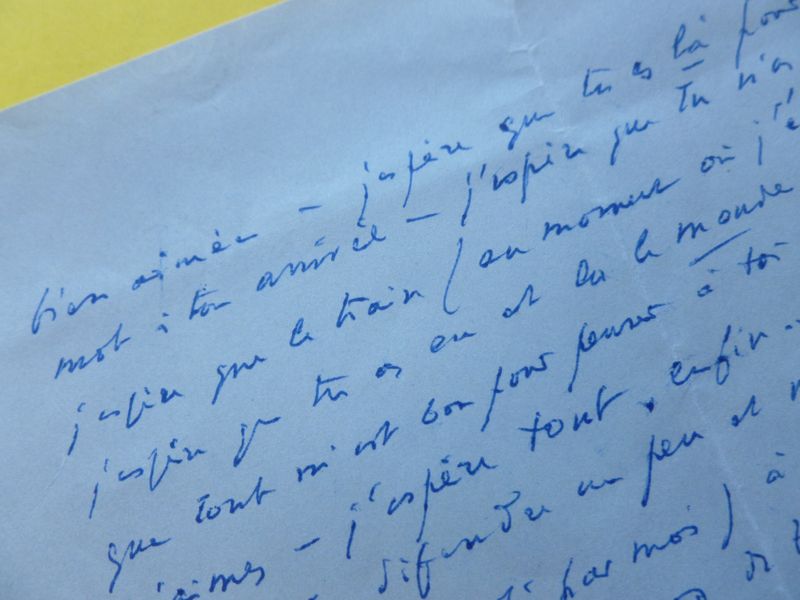 bien aimée – j'espère que tu es là pour
mot à ton arrivée – j'espère que tu n'as
j'espère que le train (au moment où j'é
j'espère que tu as eu et lu le monde
que tout m'est bon pour penser à toi
aimes – j'espère tout, enfin
un peu et
par mois) à